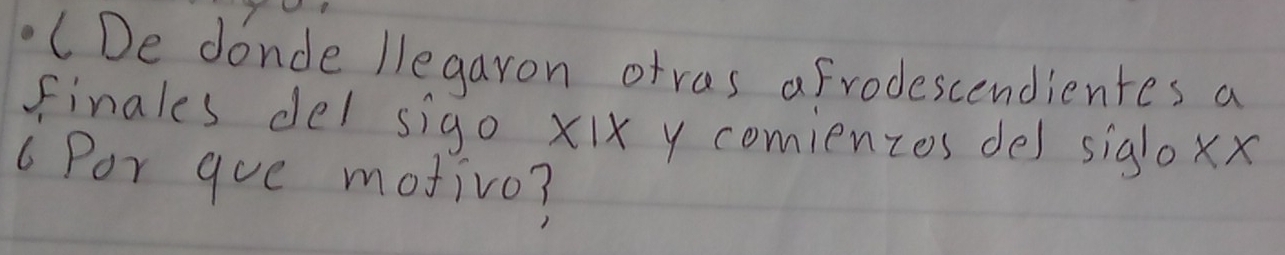 •¿De dónde llegaron otras afrodescendientes a
finales del sigo XIX y comienzos del siglo XX
¿Por que motivo?